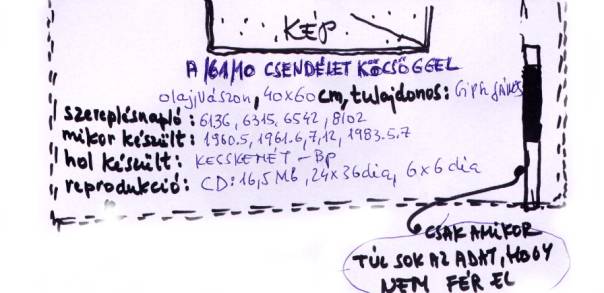 KÉP
A/61/10 CSENDÉLET KÖCSÖGGEL
olaj, vászon, 40x60 cm, tulajdonos:
szereplésnapló: 6136, 6315, 6542, 8102
mikor készült: 1960.5, 1961.6,7,12, 1983.5.7
hol készült: KECSKEMÉT - BP
reprodukció: CD: 16,5 Mb, 24x36 dia, 6x6 dia
CSAK AMIKOR
TÚL SOK AZ ADAT, HOGY
NEM FÉR EL